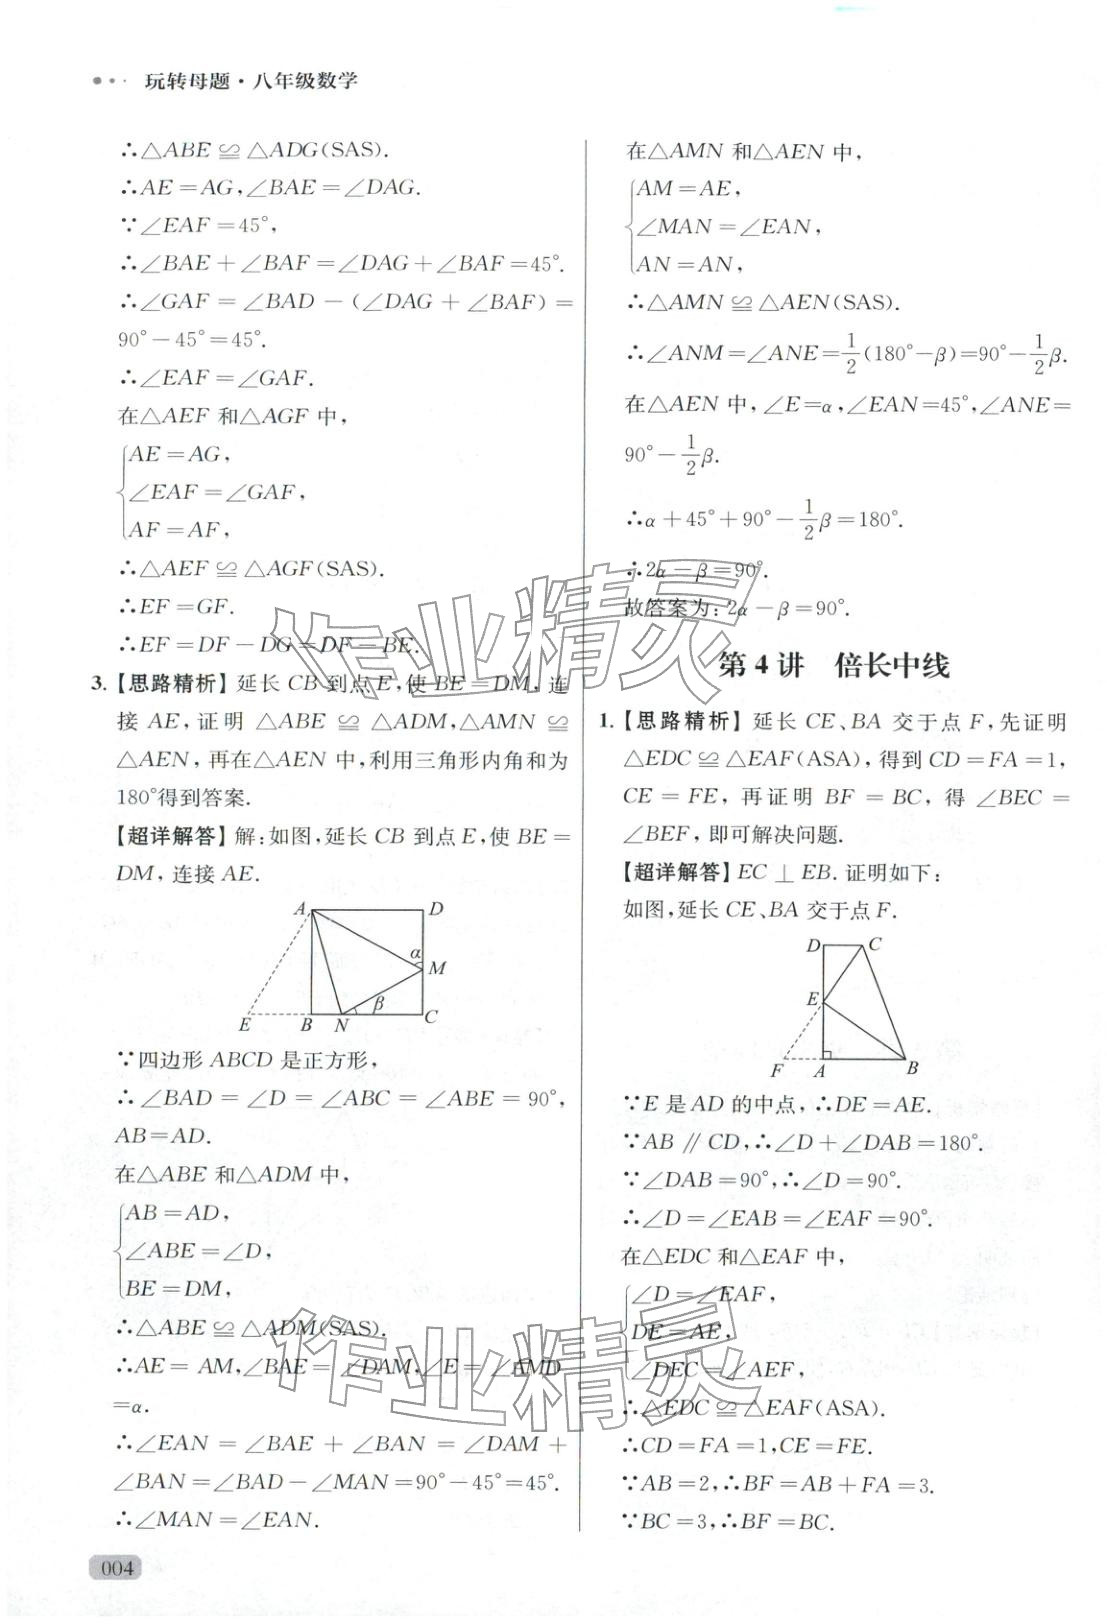 玩转母题·八年级数学
∴△ABE≌△ADG(SAS).
∴AE=AG,∠BAE=∠DAG.
∵∠EAF=45°,
∴∠BAE+∠BAF=∠DAG+∠BAF=45°.
∴∠GAF=∠BAD-(∠DAG+∠BAF)=
90°-45°=45°.
∴∠EAF=∠GAF.
在△AEF 和△AGF 中,
AE=AG,
∠EAF=∠GAF,
AF=AF,
∴△AEF≌△AGF(SAS).
∴EF=GF.
∴EF=DF-DG=DF-BE.
3.【思路精析】延长 CB 到点 E,使 BE=DM,连
接 AE,证明 △ABE ≌ △ADM,△AMN ≌
△AEN,再在△AEN 中,利用三角形内角和为
180°得到答案.
【超详解答】解:如图,延长 CB 到点 E,使 BE=
DM,连接 AE.
A D
α
M
β
E B N C
∵四边形 ABCD 是正方形,
∴∠BAD=∠D=∠ABC=∠ABE=90°,
AB=AD.
在△ABE 和△ADM 中,
AB=AD,
∠ABE=∠D,
BE=DM,
∴△ABE≌△ADM(SAS).
∴AE=AM,∠BAE=∠DAM,∠E=∠AMD
=α.
∴∠EAN=∠BAE+∠BAN=∠DAM+
∠BAN=∠BAD-∠MAN=90°-45°=45°.
∴∠MAN=∠EAN.
004
在△AMN 和△AEN 中,
AM=AE,
∠MAN=∠EAN,
AN=AN,
∴△AMN≌△AEN(SAS).
∴∠ANM=∠ANE=1/2(180°-β)=90°-1/2β.
在△AEN 中,∠E=α,∠EAN=45°,∠ANE=
90°-1/2β.
∴α+45°+90°-1/2β=180°.
∴2α-β=90°.
故答案为:2α-β=90°.
第 4 讲 倍长中线
1.【思路精析】延长 CE、BA 交于点 F,先证明
△EDC≌△EAF(ASA),得到 CD=FA=1,
CE=FE,再证明 BF=BC,得 ∠BEC=
∠BEF,即可解决问题.
【超详解答】EC⊥EB.证明如下:
如图,延长 CE、BA 交于点 F.
D C
E
F A B
∵E 是 AD 的中点,∴DE=AE.
∵AB∥CD,∴∠D+∠DAB=180°.
∵∠DAB=90°,∴∠D=90°.
∴∠D=∠EAB=∠EAF=90°.
在△EDC 和△EAF 中,
∠D=∠EAF,
DE=AE,
∠DEC=∠AEF,
∴△EDC≌△EAF(ASA).
∴CD=FA=1,CE=FE.
∵AB=2,∴BF=AB+FA=3.
∵BC=3,∴BF=BC.
作业精灵
作业精灵